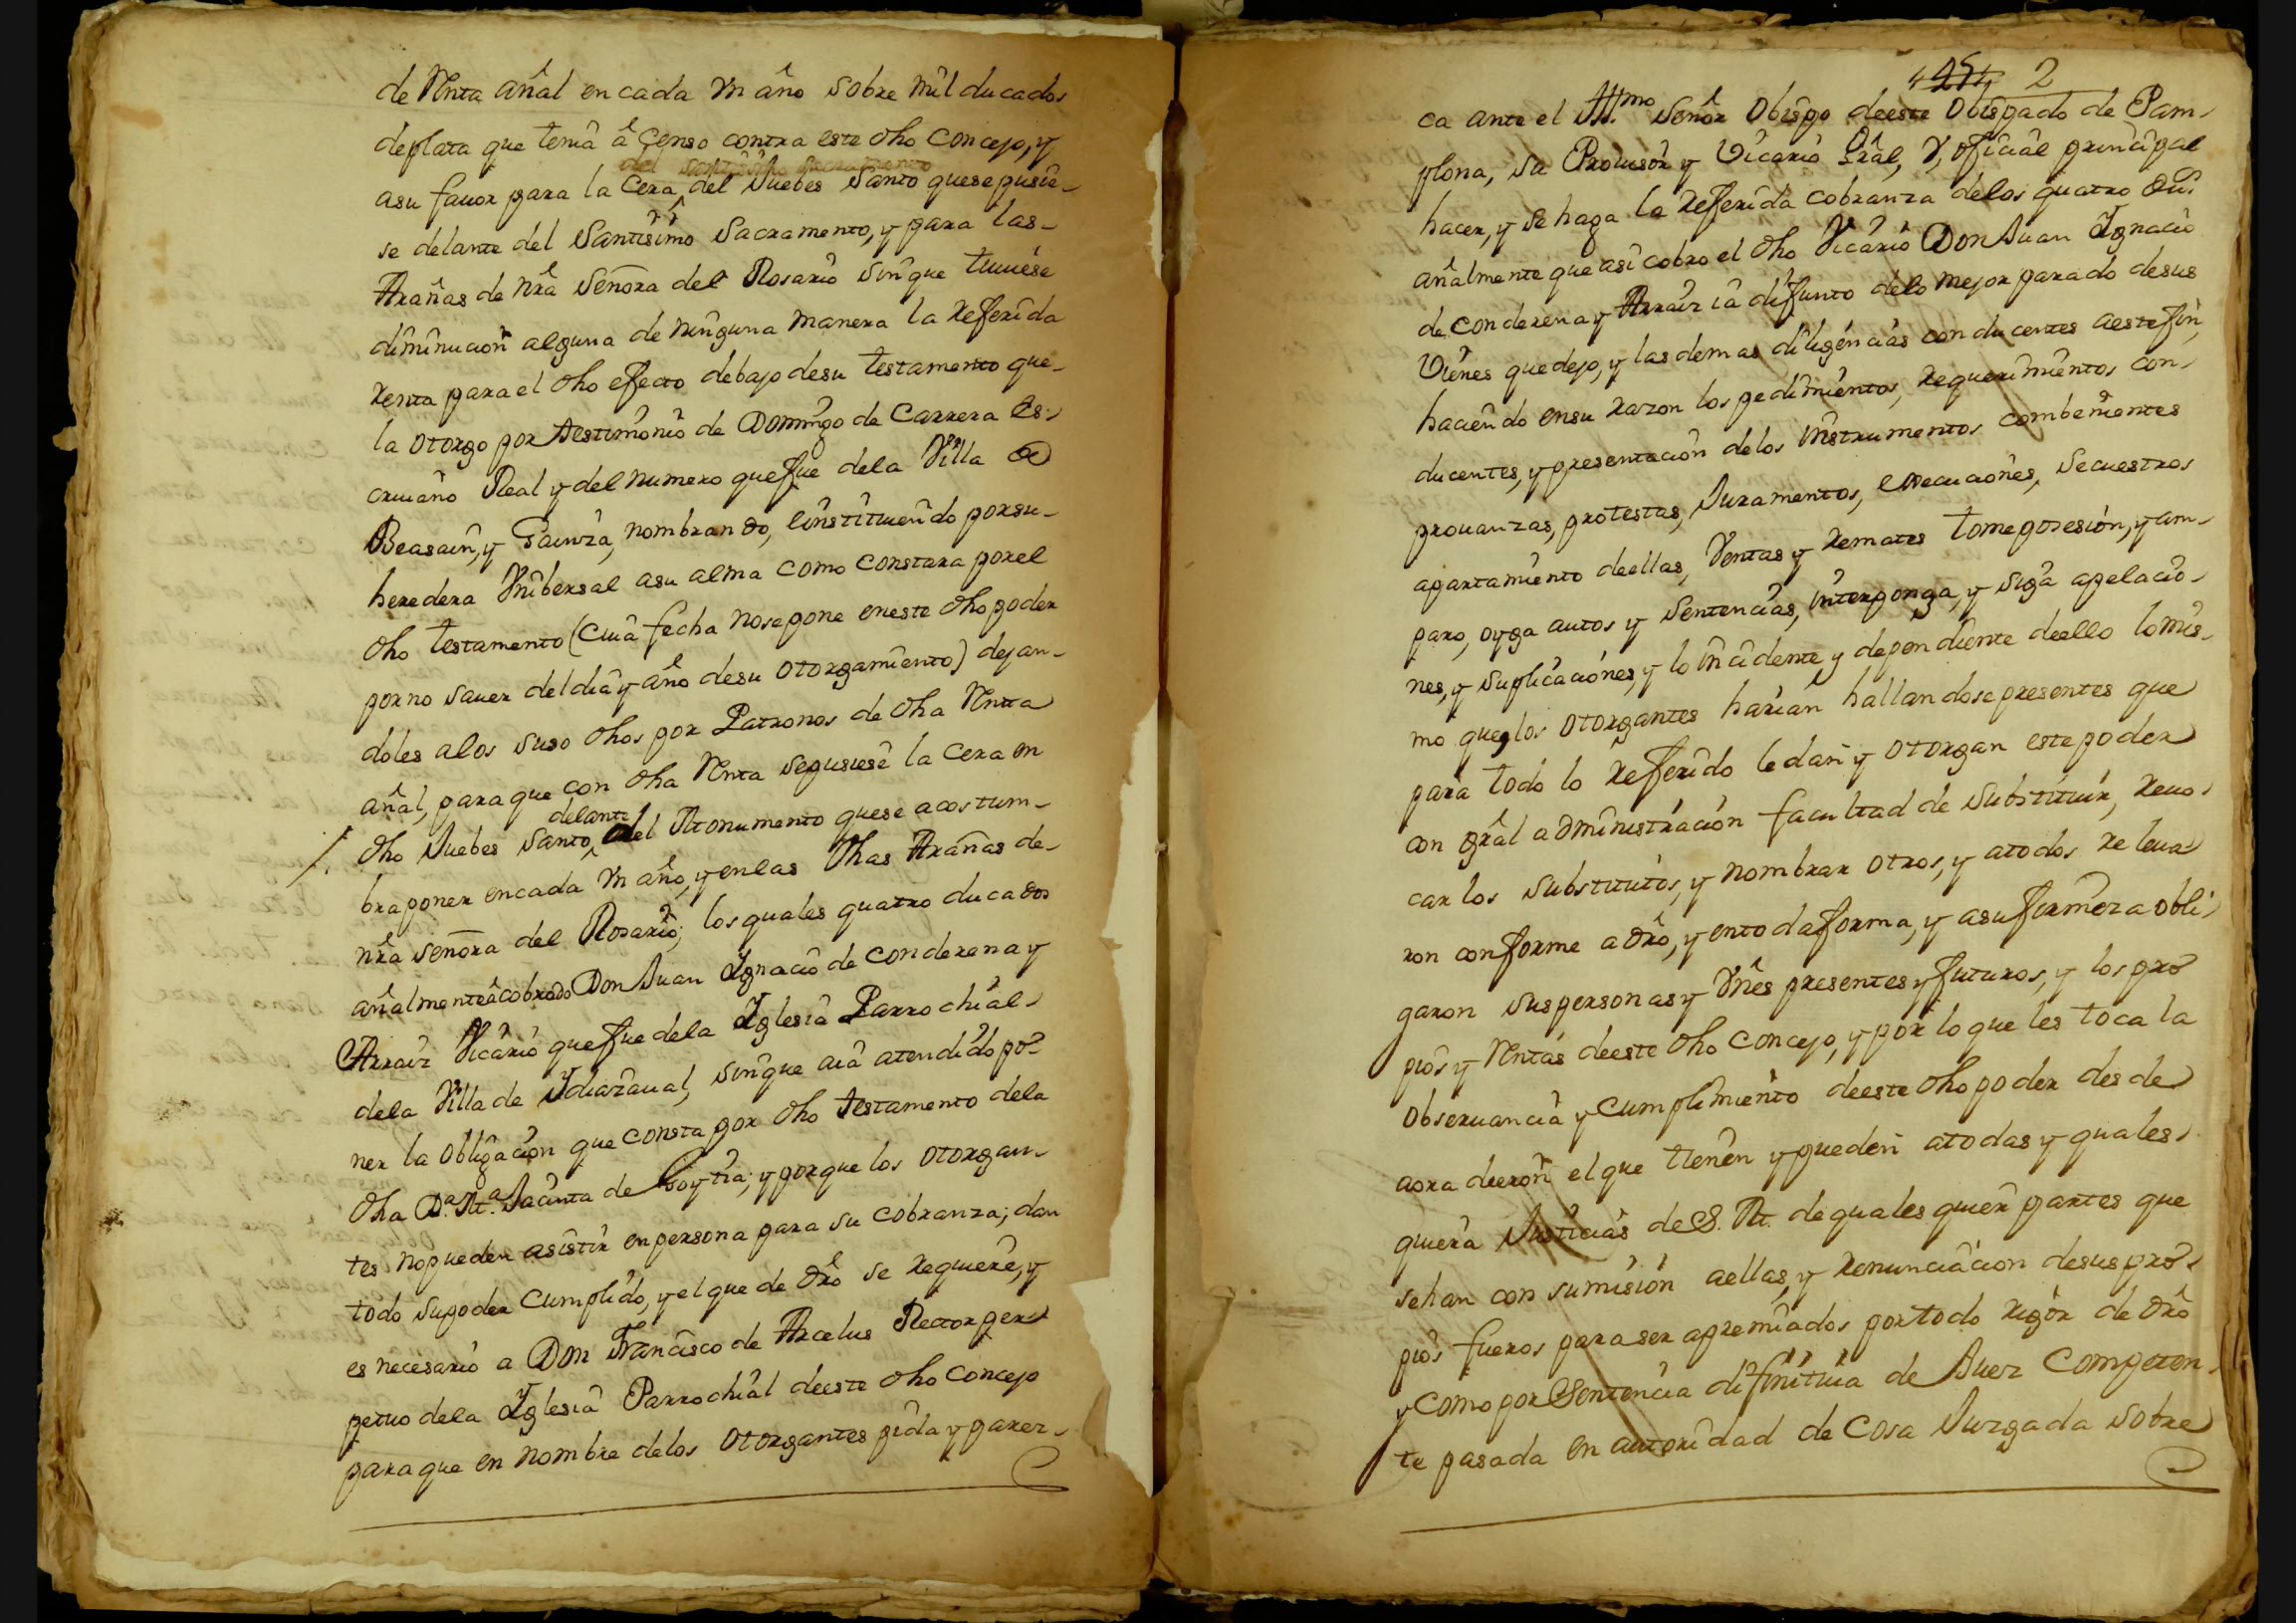 de Renta añal en cada Vn año sobre mil ducados
deplata que tenia à Çenso contra este dho Concejo, y
del santisimo sacramento
asu fauor para la Cera, del Juebes Santo quese pusie-
se delante del Santisimo Sacramento, y para las-
Arañas de nrã Señora del Rosario sinque tuuiese
diminucion alguna de ninguna manera la Referida
Renta para el dho efecto debajo desu testamento que-
la otorgo por testimonio de Domingo de Carrera Es-
criuano Real y del numero quefue dela Villa de
Beasain, y Gainza, nombrando, e instituiendo porsu-
heredera Vnibersal asu alma como constara porel
dho testamento (cuia fecha nosepone eneste dho poder
porno sauer deldia y año desu otorgamiento) dejan-
doles alos suso dhos por Patronos de dha Renta
añal, paraque con dha Renta sepusiese la Cera en
delante
dho Juebes Santo, del Monumento quese acostum-
braponer encada Vn año, y enlas dhas Arañas de-
nrã señora del Rosario; los quales quatro ducados
añalmente à cobrado Don Juan Ignacio de Conderena y
Arraiz Vicario quefue dela Iglesia Parrochial
dela Villa de Ydiazaual, sinque aia atendido po-
ner la obligacion que consta por dho testamento dela
dha D.ª M.ª Jacinta de Goytia; y porque los otorgan-
tes nopueden asistir enpersona para su cobranza; dan
todo supoder Cumplido, y el que de drõ se requiere, y
es necesario a Don Francisco de Arcelus Rector per-
petuo dela Iglesia Parrochial deeste dho Concejo
paraque en nombre delos otorgantes pida y parez-
2
ca ante el Ill.mo Señor Obispo deeste Obispado de Pam-
plona, su Prouisor y Vicario Grãl, y, oficial principal
hacer, y se haga la Referida cobranza delos quatro du.s
añalmente que asi cobro el dho Vicario Don Juan Ignacio
de Conderena y Arraiz ia difunto delo mejor parado desus
Vienes quedejo, y las demas diligencias conducentes aestefin,
haciendo ensu razon los pedimientos, requerimientos con-
ducentes, y presentacion delos instrumentos combenientes
prouanzas, protestas, Juramentos, execuciones, secuestros
apartamiento deellas, Ventas y remates tome posesion, y am-
paro, oyga autos y sentencias, interponga, y siga apelacio-
nes, y suplicaciones, y lo incidente y dependiente deello lomis-
mo que los otorgantes harian hallandose presentes que
para todo lo Referido ledan y otorgan este poder
con grãl administracion facultad de substituir, reuo-
car los substitutos, y nombrar otros, y atodos releua-
ron conforme a drõ, y entoda forma, y asufirmeza obli-
garon sus personas y Vñes presentes y futuros, y los pro-
pios y Rentas deeste dho Concejo, y por lo que les toca la
obseruancia y cumplimiento deeste dho poder desde
aora dieron el que tienen y pueden atodas y quales-
quiera Justicias de S. M. de quales quier partes que
sehan con sumision aellas, y renunciacion desus pro-
pios fueros para ser apremiados por todo rigor de drõ
y como por Sentencia difinitiua de Juez Competen-
te pasada en autoridad de Cosa Juzgada sobre